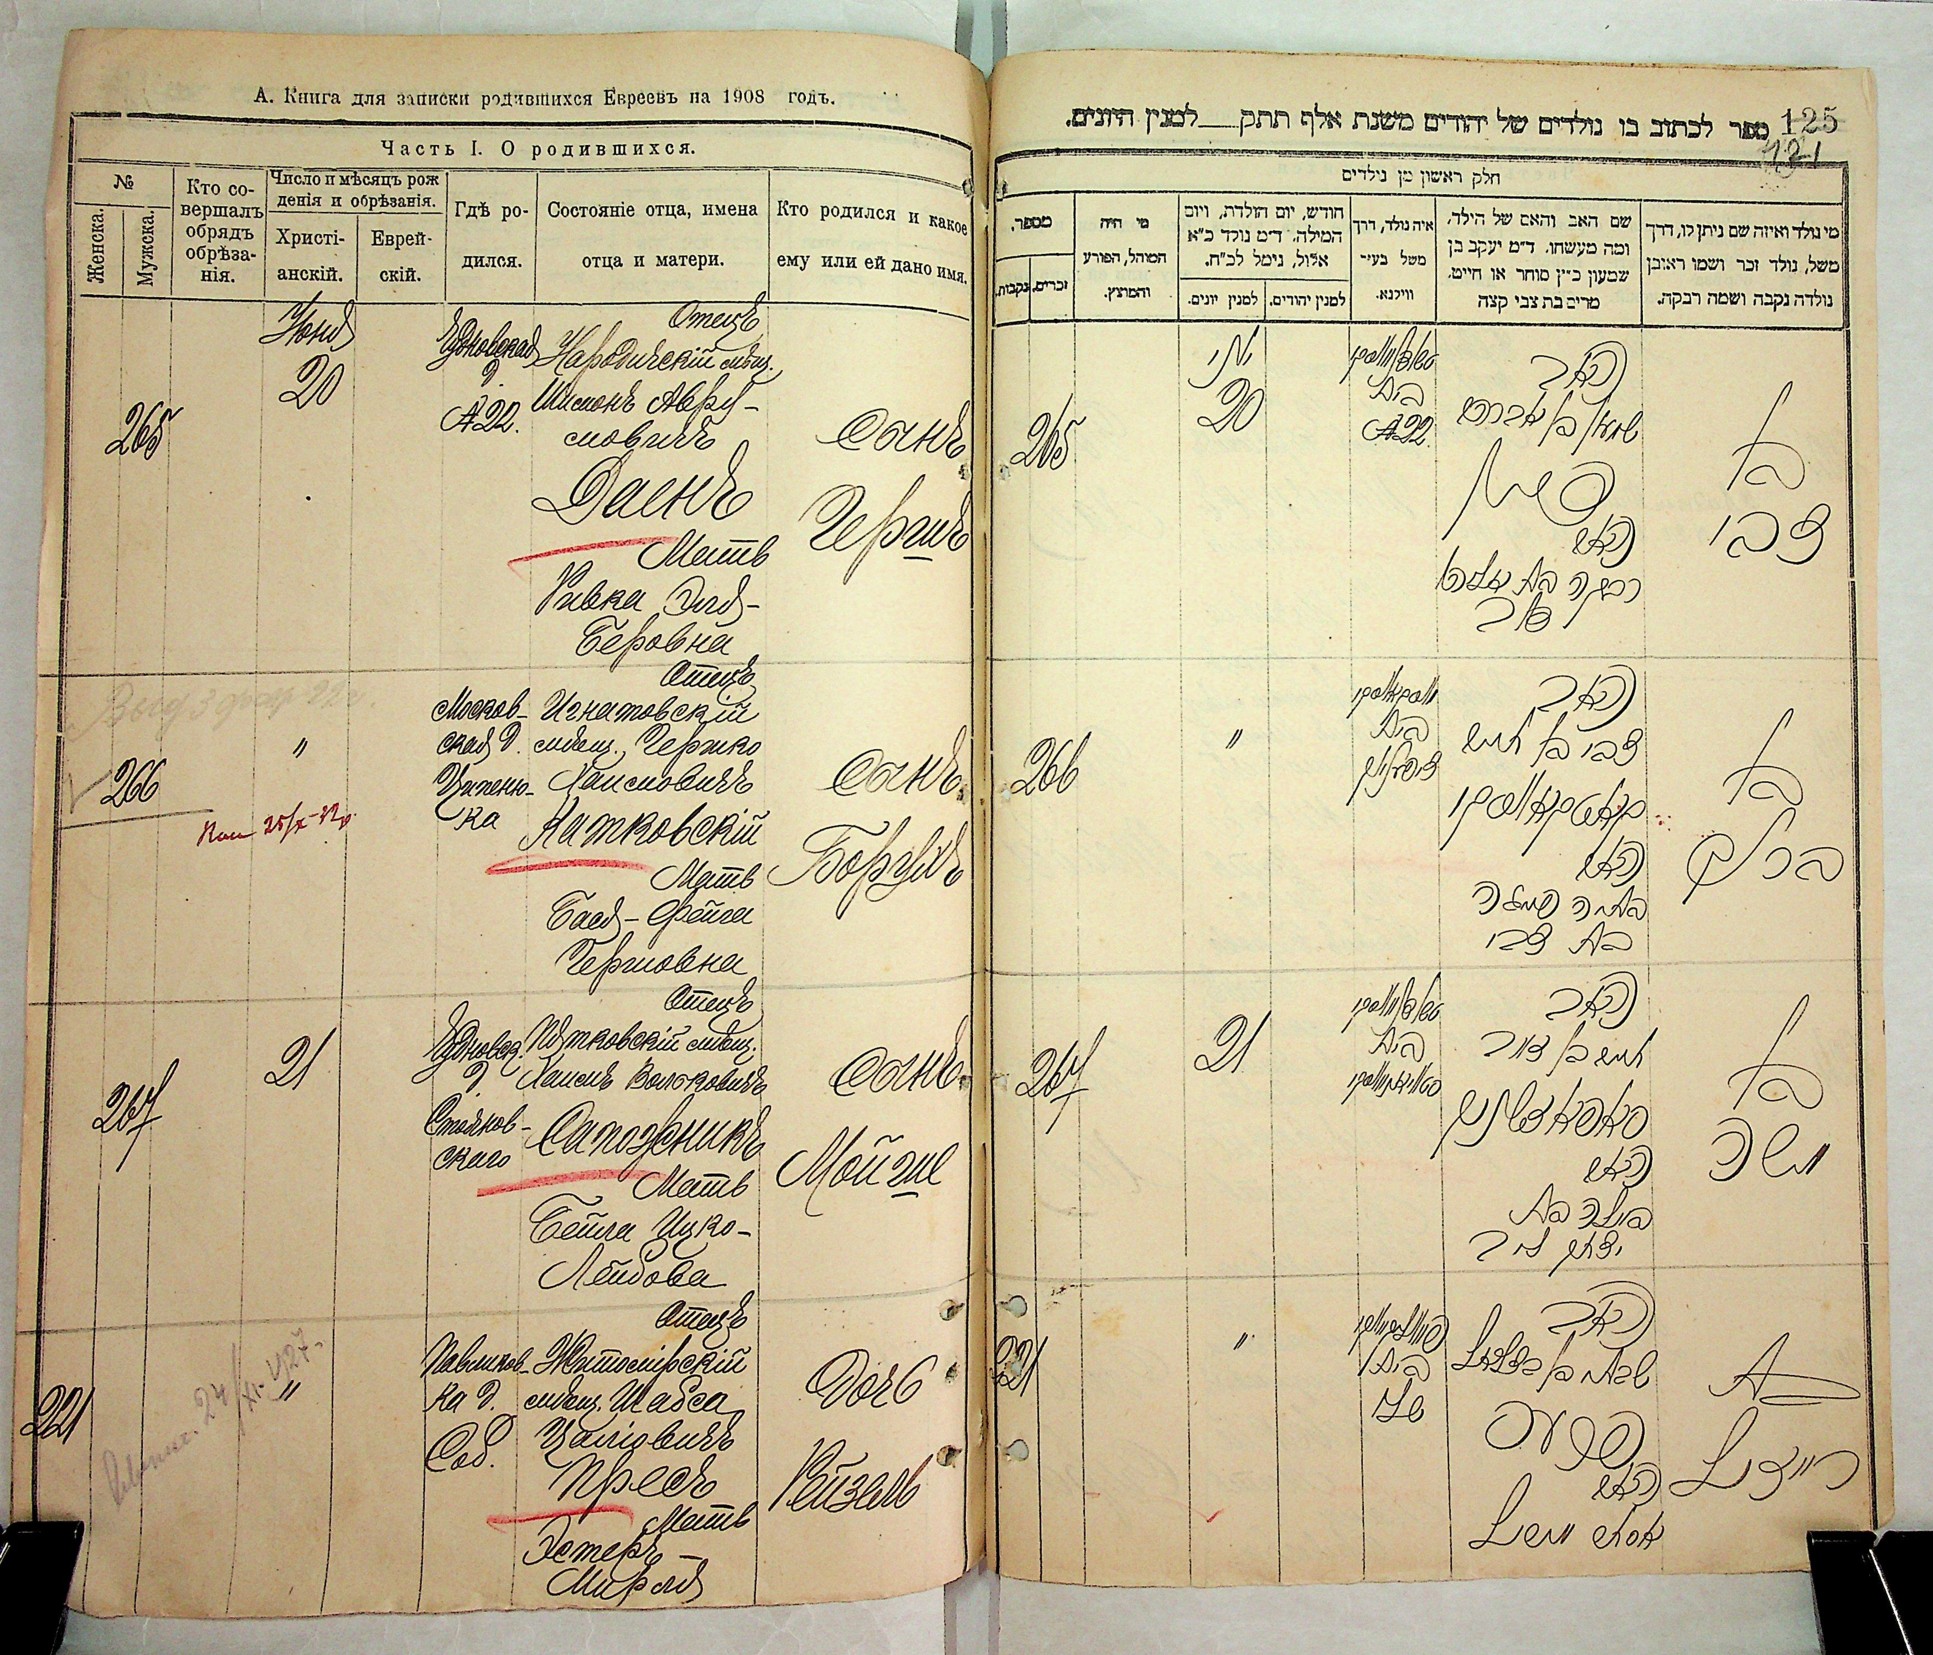 А. Книга для записки родившихся Евреевъ на 1908 годъ.
Часть I. О родившихся.
№
Женска.
Мужска.
Кто со-
вершалъ
обрядъ
обрѣза-
нія.
Число и мѣсяцъ рож
денія и обрѣзанія.
Христі-
анскій.
Еврей-
скій.
Гдѣ ро-
дился.
Состояніе отца, имена
отца и матери.
Кто родился и какое
ему или ей дано имя.
265
Іюня
20
Чудновская
д.
№ 22.
Отецъ
Народичскій мѣщ.
Шимонъ Авру-
мовичъ
Даенъ
Мать
Ривка Эля-
Беровна
Сынъ
Гершъ
266
"
Москов-
ская д.
Ципеню-
ка
Отецъ
Игнатовскій
мѣщ., Гершко
Хаимовичъ
Катковскій
Мать
Бася-Фейга
Гершовна
Сынъ
Борухъ
267
21
Чудновск.
д.
Стоянов-
скаго
Отецъ
Пятковскій мѣщ.
Хаимъ Вольковичъ
Сапожникъ
Мать
Бейла Ицко-
Лейбова
Сынъ
Мойше
221
"
Павликов-
ка д.
Соб.
Отецъ
Житомірскій
мѣщ. Шабса
Цалловичъ
Пресъ
Мать
Эстеръ-
Мирля
Дочь
Рейзель
125
121
ספר לכתוב בו נולדים של יהודים משנת אלף תתק למנין היונים.
חלק ראשון מן נולדים
מספר.
זכרים.
נקבות.
מי היה
המוהל, הפורע
והמוצץ.
חודש, יום הולדת, ויום
המילה. ד״מ נולד כ״א
אלול, נימל לכ״ח.
למנין יונים.
למנין יהודים.
איה נולד, דרך
משל בעיר
ווילנא.
שם האב והאם של הילד,
ומה מעשהו. ד״מ יעקב בן
שמעון כ״ץ סוחר או חייט,
מרים בת צבי קצה
מי נולד ואיזה שם ניתן לו, דרך
משל, נולד זכר ושמו ראובן
נולדה נקבה ושמה רבקה.
265
יוני
20
בית
№ 22.
האב
שמעון בן אברהם
דיין
האם
רבקה בת אליהו
דוב
בן
צבי
266
"
מאסקאווסקי
בית
ציפעניוק
האב
צבי בן חיים
קאטקאווסקי
האם
באסיה פייגה
בת צבי
בן
ברוך
267
21
בית
האב
חיים בן זאב
סאפאזשניק
האם
ביילה בת
יצחק ליב
בן
משה
221
"
בית
שלו
האב
שבתי בן בצלאל
פרעס
האם
אסתר מירל
בת
רייזיל